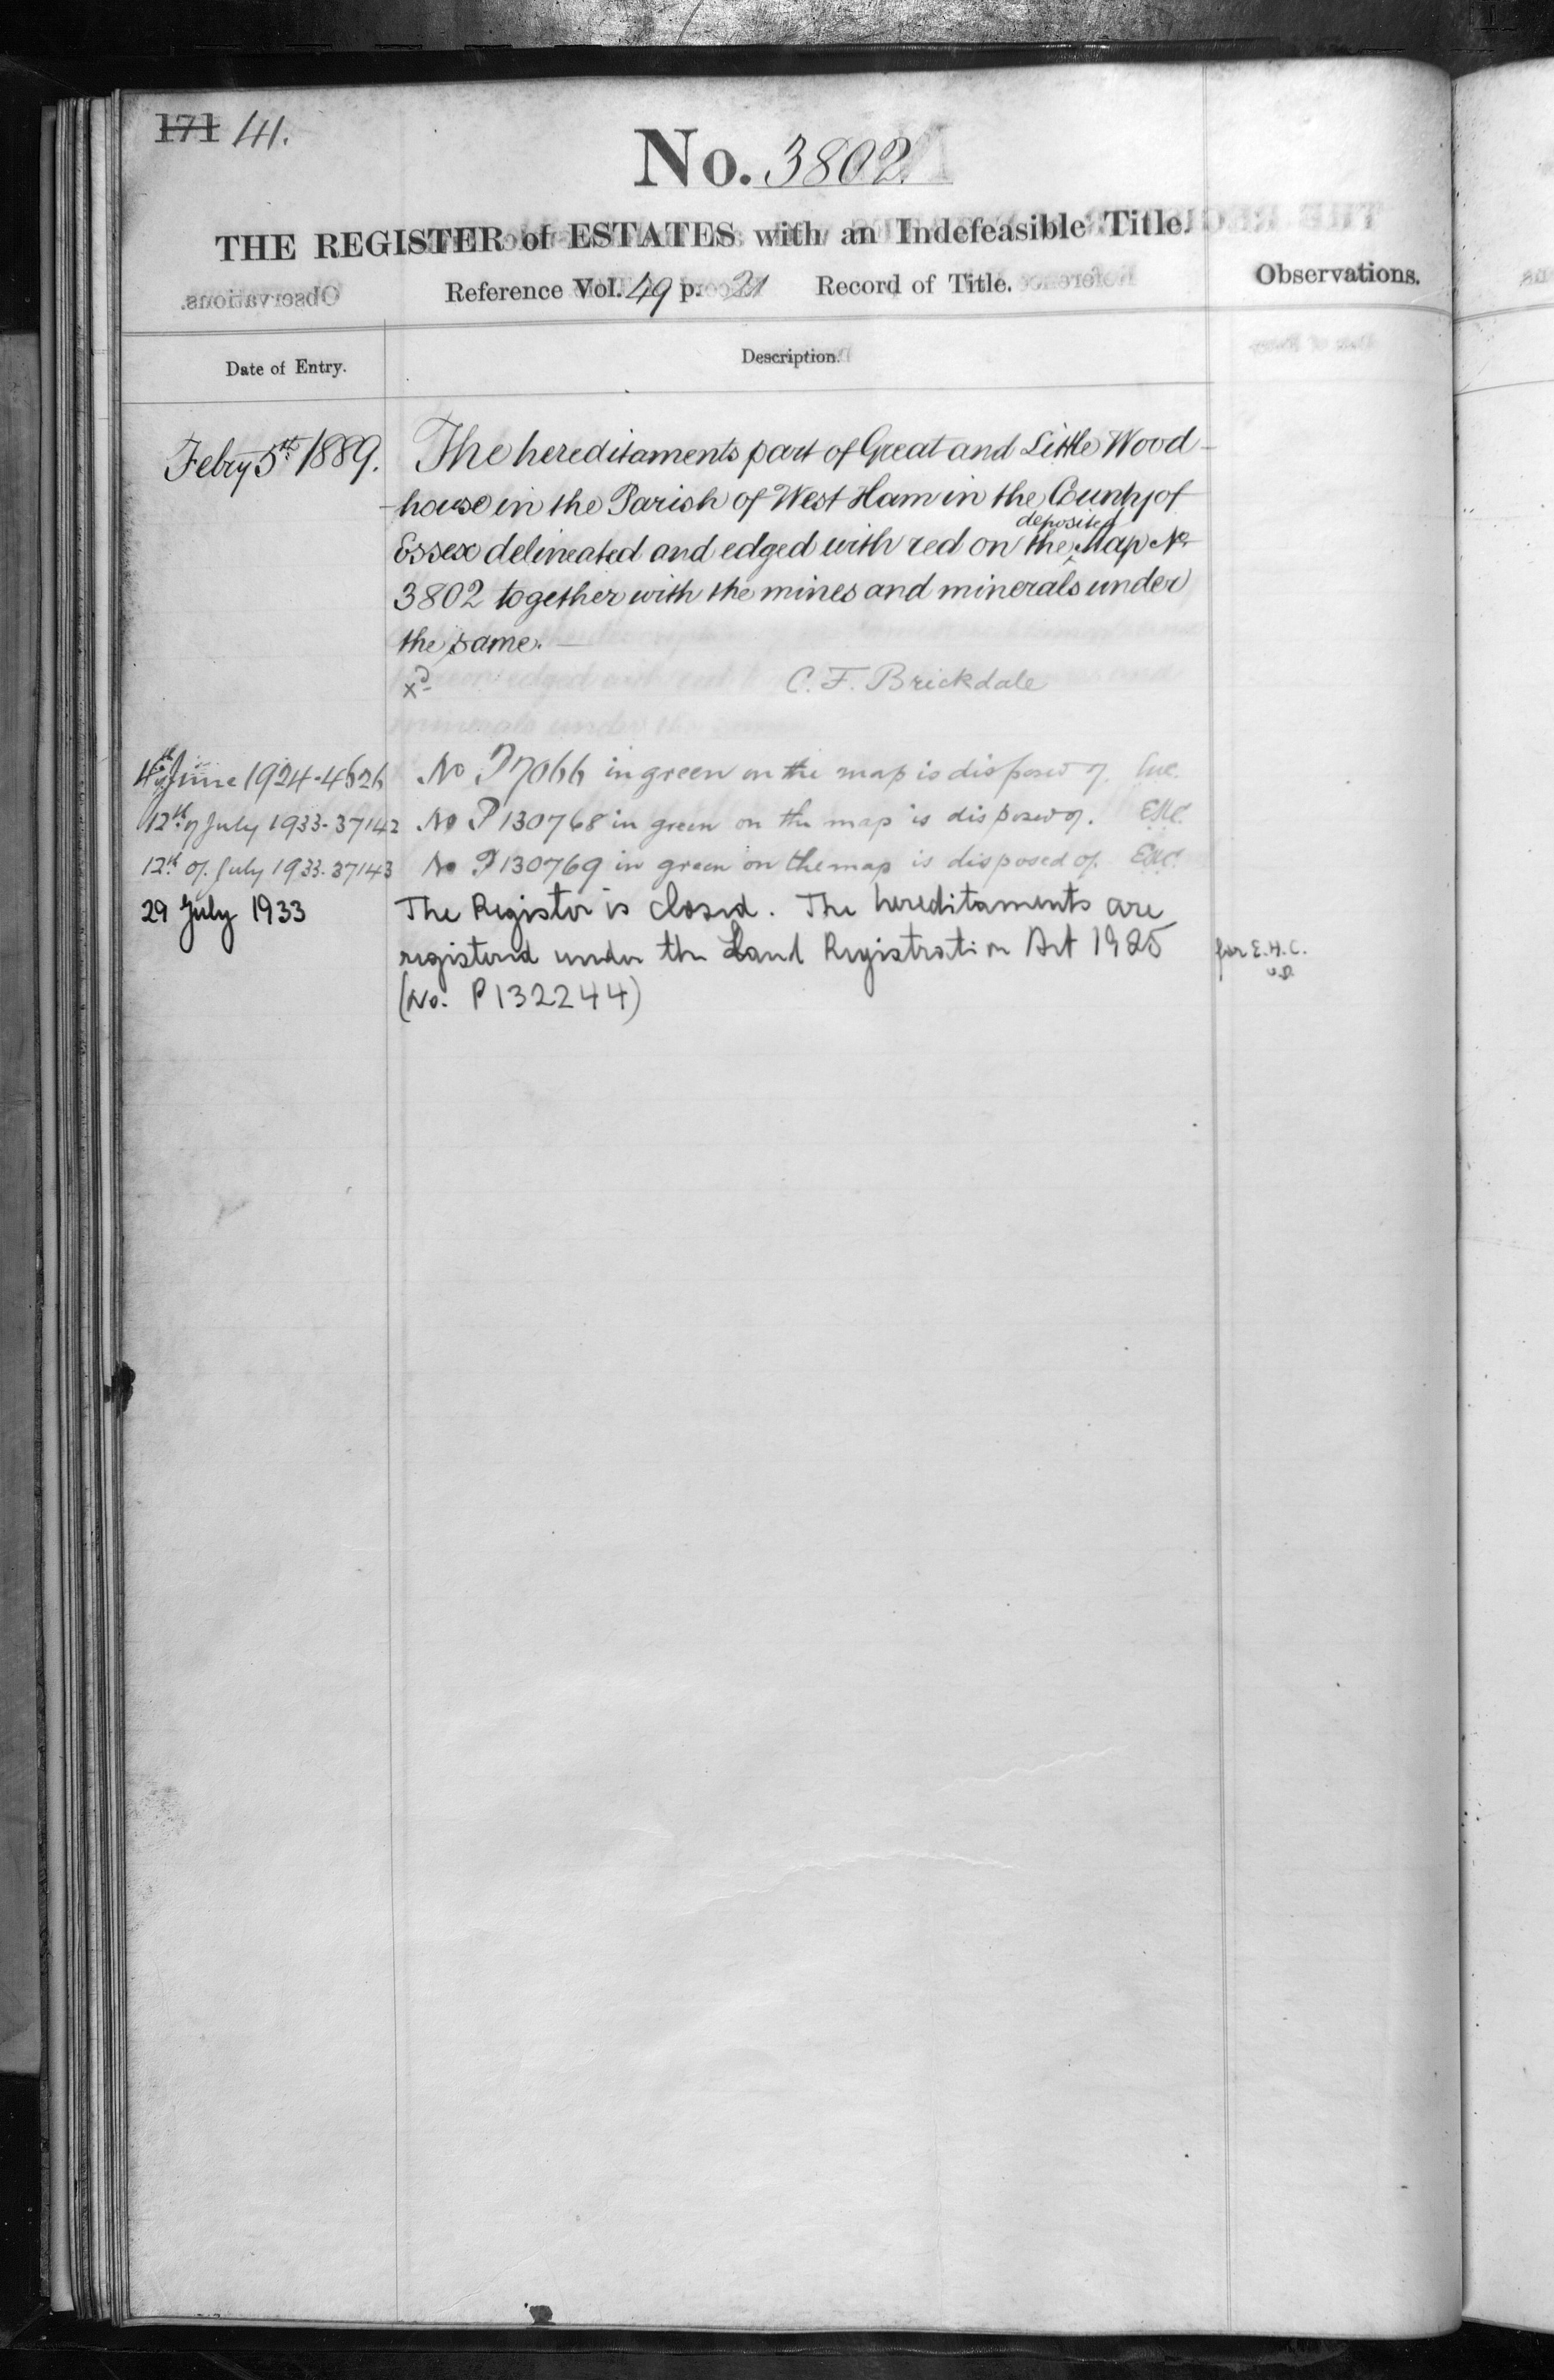 171 141.
No. 3802.
THE REGISTER of ESTATES with an Indefeasible Title.
Reference Vol. 49 p. 21 Record of Title.
Observations.
Date of Entry.
Description.
Febry 5th 1889. The hereditaments part of Great and Little Wood-
-house in the Parish of West Ham in the County of
deposited
Essex delineated and edged with red on the Map No
3802 together with the mines and minerals under
the same.
C. F. Brickdale
4th of June 1924 - 4626 No P7066 in green on the map is disposed of.
12th of July 1933 - 37142 No P130768 in green on the map is disposed of. EHC.
12th of July 1933 - 37143 No P130769 in green on the map is disposed of. EHC.
29 July 1933 The Register is closed. The hereditaments are
registered under the Land Registration Act 1925 for E.H.C.
(No. P132244)